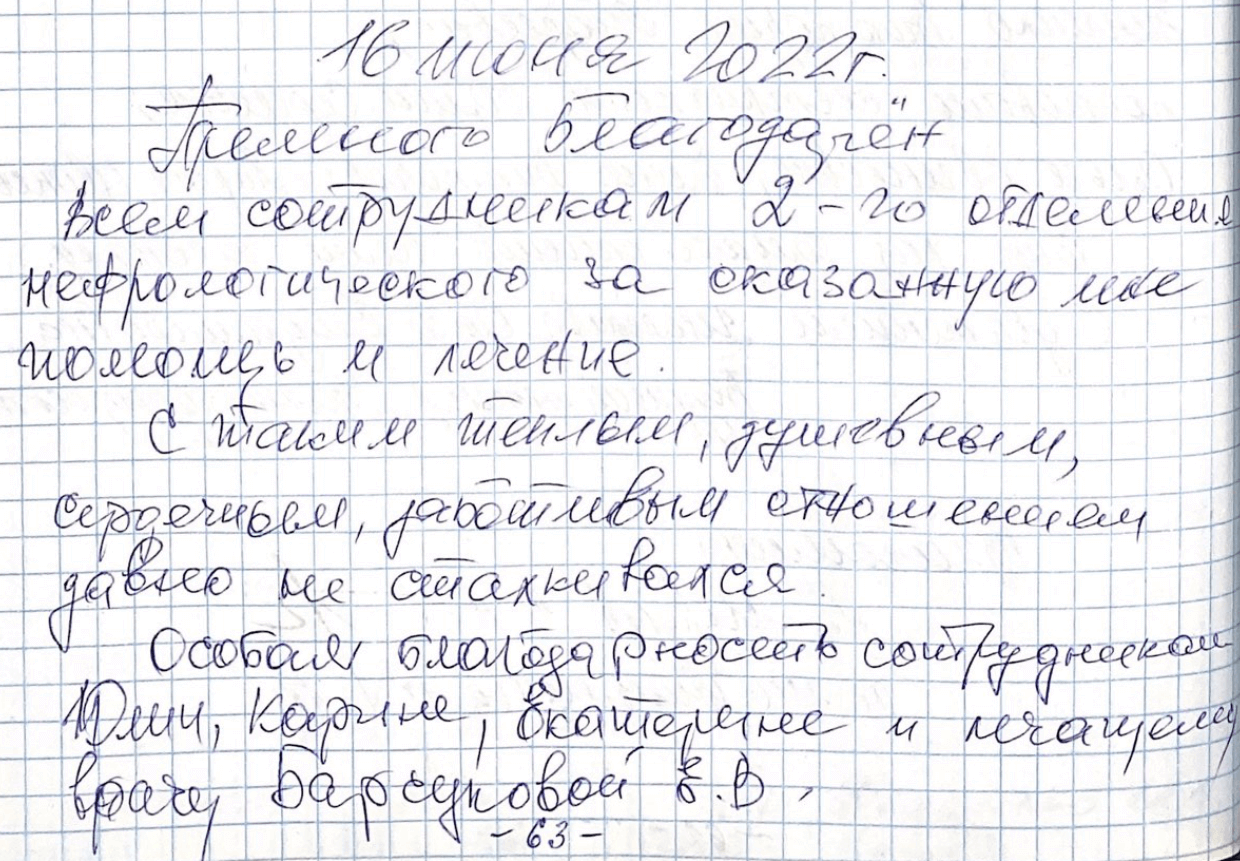 16 июня 2022г.
Премного благодарён
всем сотрудникам 2-го отделения
нефрологического за оказанную мне
помощь и лечение.
С таким теплым, душевным,
сердечным, заботливым отношением
давно не сталкивался.
Особая благодарность сотрудникам
Юлии, Карине, Екатерине и лечащему
врачу Барсуковой Е.В.
-63-